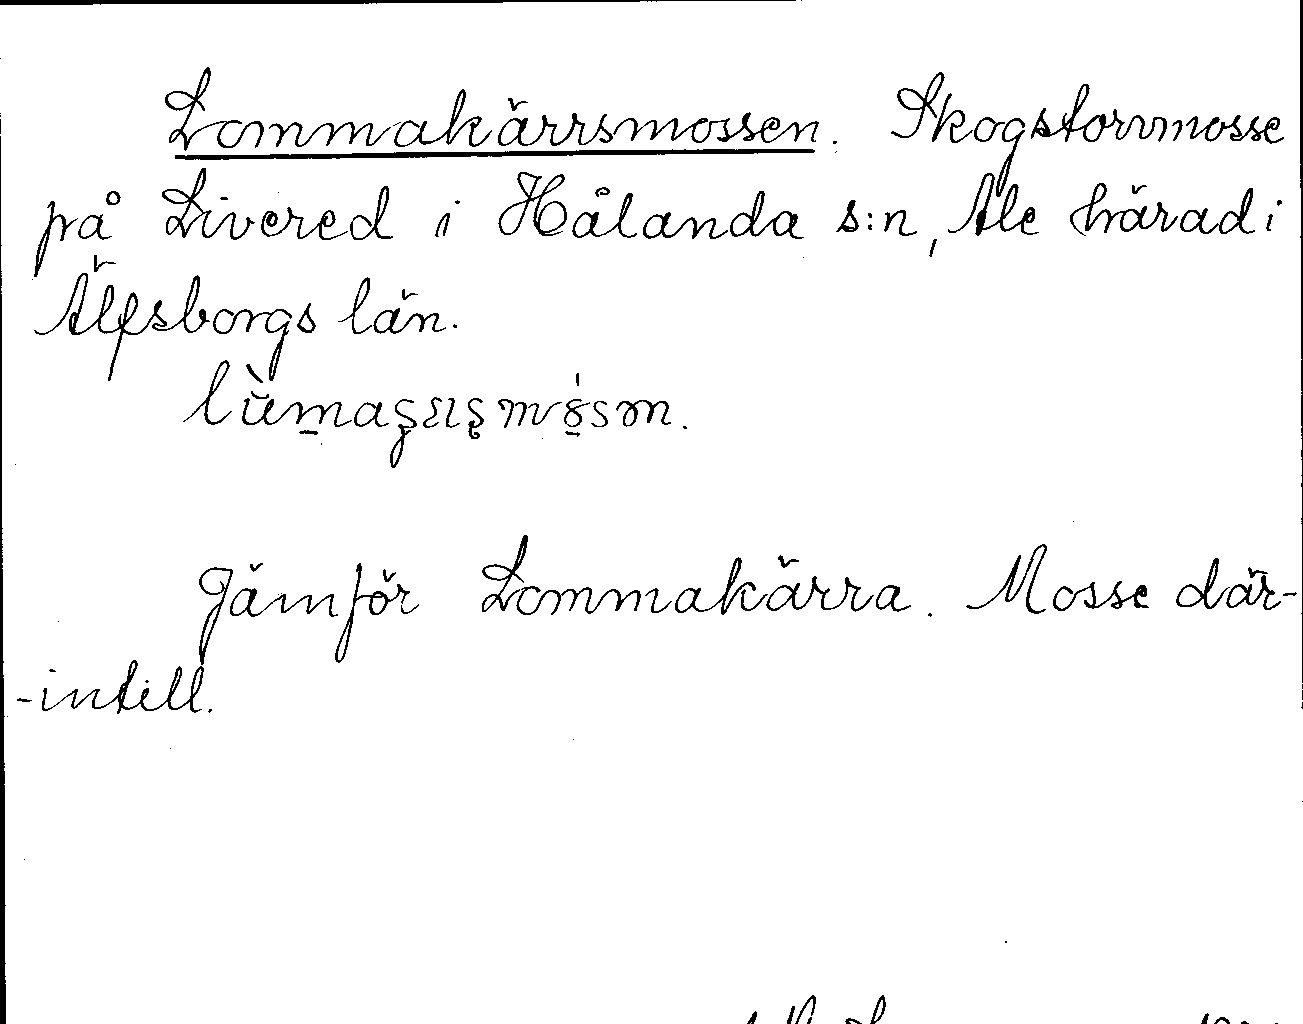 Lommakärrsmossen. Skogstorvmosse
på Livered i Hålanda s:n, Ale härad i
Älfsborgs län.
Jämför Lommakärra. Mosse där-
-intill.